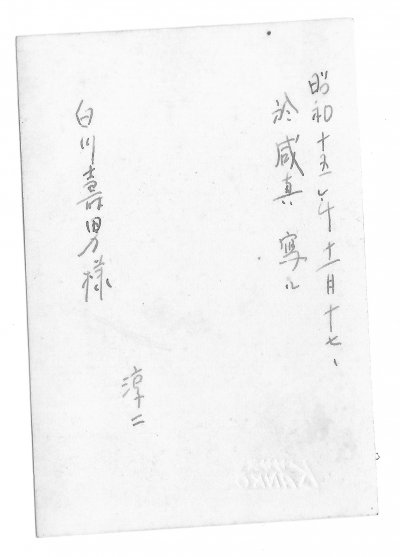 昭和十五年十一月十七、
於 咸真 寫ル
白川壽男様
淳二
KANKO